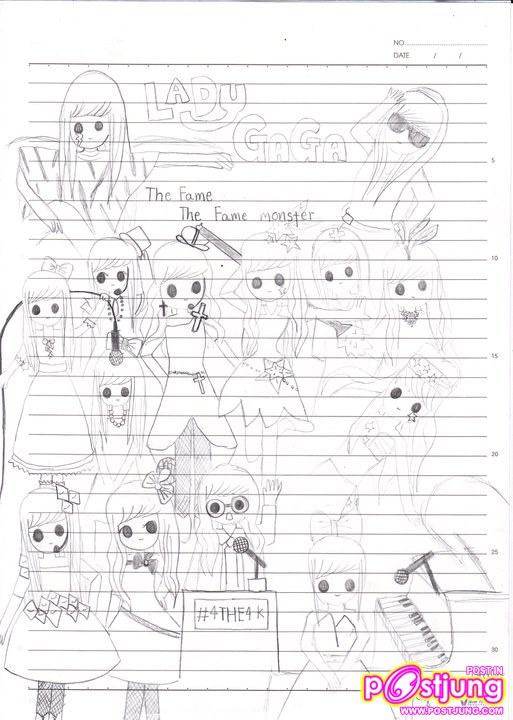 NO.
DATE / /
LADY
GAGA
5
The Fame
The Fame monster
10
15
20
25
#4THE4K
30
POST IN
postjung
WWW.POSTJUNG.COM